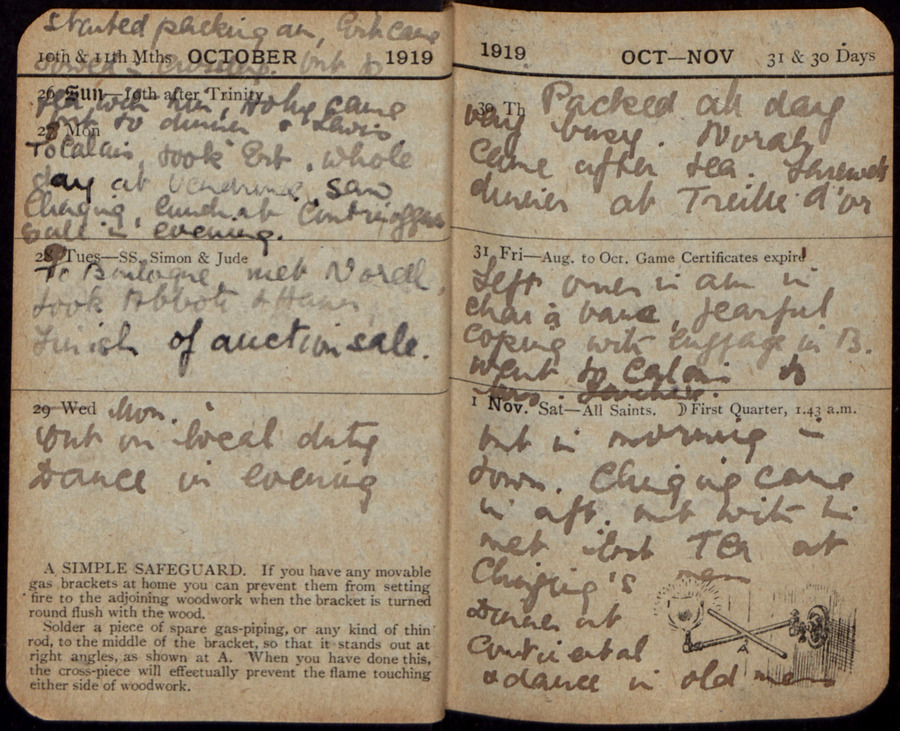 started packing am, Erb came
10th & 11th Mths OCTOBER 1919
out to
26 Sun—19th after Trinity
tea with him, came
27 Mon
out to dinner &
To Calais, took Erb, whole
day at Vendroux, saw
Chinging, lunch at
sale in evening.
28 Tues—SS. Simon & Jude
To Boulogne met Norah,
took Abbott &
Finish of auction sale.
29 Wed Mon.
Out on local duty
Dance in evening
A SIMPLE SAFEGUARD. If you have any movable
gas brackets at home you can prevent them from setting
fire to the adjoining woodwork when the bracket is turned
round flush with the wood.
Solder a piece of spare gas-piping, or any kind of thin
rod, to the middle of the bracket, so that it stands out at
right angles, as shown at A. When you have done this,
the cross-piece will effectually prevent the flame touching
either side of woodwork.
1919 OCT—NOV 31 & 30 Days
30 Th Packed all day
very busy. Norah
came after tea. Farewell
dinner at Treille d'or
31 Fri—Aug. to Oct. Game Certificates expire
Left in am in
char à banc, fearful
coping with luggage in B.
went to Calais to
1 Nov. Sat—All Saints. ☽ First Quarter, 1.43 a.m.
out in morning in
town. Chinging came
in aft. out with him
met Tea at
Chinging's
Dinner at
Continental
& dance in old mess
A